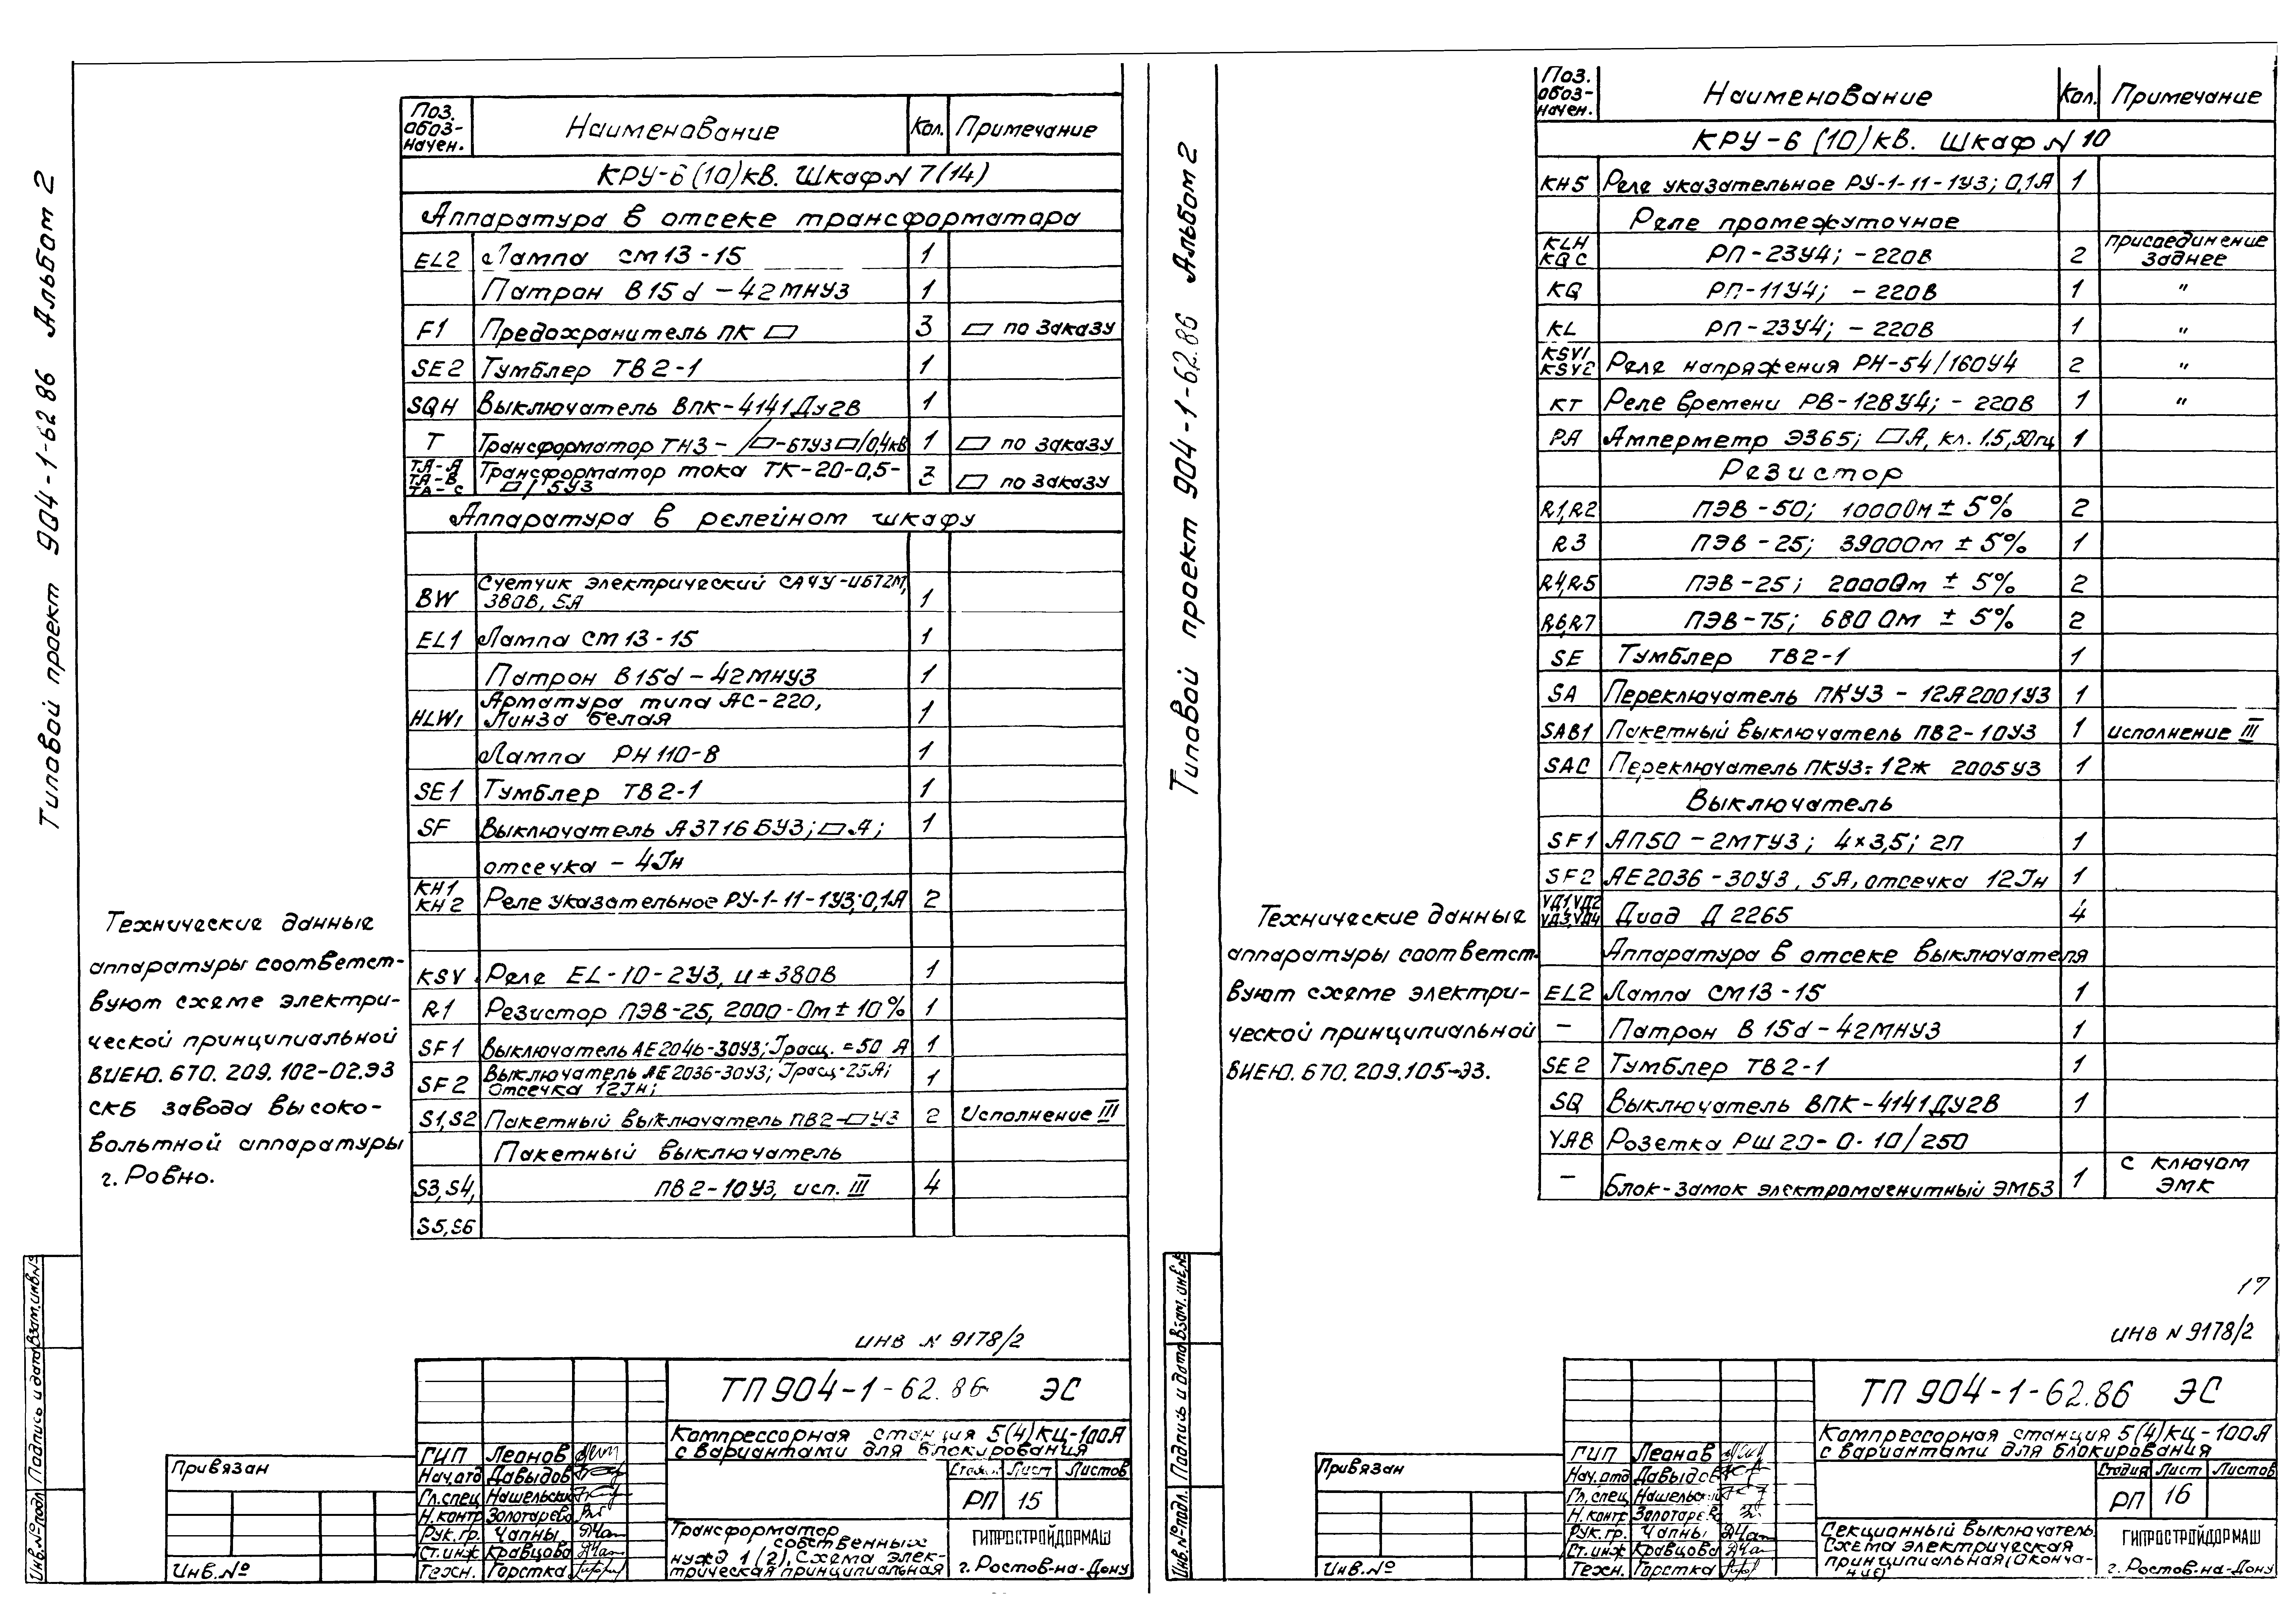 Типовой проект 904-1-62.86 Альбом 2
Поз. обоз-начен. Наименование Кол. Примечание
КРУ-6(10)кВ. Шкаф N 7(14)
Аппаратура в отсеке трансформатора
EL2 Лампа СМ13-15 1
Патрон В15d-42МНУ3 1
F1 Предохранитель ПК ▭ 3 ▭ по заказу
SE2 Тумблер ТВ2-1 1
SQH Выключатель ВПК-4141ДУ2В 1
T Трансформатор ТНЗ-/▭-БТУ3▭/0,4кВ 1 ▭ по заказу
TA-A TA-B TA-C Трансформатор тока ТК-20-0,5-
▭/5У3 3 ▭ по заказу
Аппаратура в релейном шкафу
BW Счетчик электрический СА4У-И672М,
380В, 5А 1
EL1 Лампа СМ13-15 1
Патрон В15d-42МНУ3 1
HLW1 Арматура типа АС-220,
Линза белая 1
Лампа РН110-8 1
SE1 Тумблер ТВ2-1 1
SF Выключатель А3716БУ3; ▭А; 1
отсечка - 4Iн
KH1 KH2 Реле указательное РУ-1-11-1У3; 0,1А 2
KSV Реле EL-10-2У3, и ± 380В 1
R1 Резистор ПЭВ-25, 2000-Ом ± 10% 1
SF1 Выключатель АЕ2046-30У3; Iрасц. = 50 А 1
SF2 Выключатель АЕ2036-30У3; Iрасц-25А;
Отсечка 12Iн; 1
S1,S2 Пакетный выключатель ПВ2-▭У3 2 Исполнение III
Пакетный выключатель
S3,S4, ПВ2-10У3, исп. III 4
S5,S6
Технические данные
аппаратуры соответст-
вуют схеме электри-
ческой принципиальной
ВИЕЮ.670.209.102-02.Э3
СКБ завода высоко-
вольтной аппаратуры
г. Ровно.
ИНВ N 9178/2
ТП 904-1-62.86 ЭС
Компрессорная станция 5(4)КЦ-100А
с вариантами для блокирования
ГИП Леонов
Нач.отд Давыдов
Гл.спец Нашельский
Н.контр Золотарева
Рук.гр. Чапны
Ст.инж Кравцова
Техн. Горстка
Стадия Лист Листов
РП 15
Трансформатор
собственных
нужд 1(2), Схема элек-
трическая принципиальная
ГИПРОСТРОЙДОРМАШ
г. Ростов-на-Дону
Привязан
Инв.№
Инв.№подл Подпись и дата Взам.инв.№
Типовой проект 904-1-62.86 Альбом 2
Поз. обоз-начен. Наименование Кол. Примечание
КРУ-6(10)кВ. Шкаф N 10
KH5 Реле указательное РУ-1-11-1У3; 0,1А 1
Реле промежуточное
KLH KQC РП-23У4; -220В 2 присоединение заднее
KQ РП-11У4; -220В 1 "
KL РП-23У4; -220В 1 "
KSV1 KSV2 Реле напряжения РН-54/160У4 2 "
KT Реле времени РВ-128У4; -220В 1 "
PA Амперметр Э365; ▭А, кл. 1.5, 50гц 1
Резистор
R1,R2 ПЭВ-50; 1000Ом ± 5% 2
R3 ПЭВ-25; 3900Ом ± 5% 1
R4,R5 ПЭВ-25; 2000Ом ± 5% 2
R6,R7 ПЭВ-75; 680 Ом ± 5% 2
SE Тумблер ТВ2-1 1
SA Переключатель ПКУ3-12А2001У3 1
SAB1 Пакетный выключатель ПВ2-10У3 1 исполнение III
SAC Переключатель ПКУ3-12ж 2005У3 1
Выключатель
SF1 АП50-2МТУ3; 4×3,5; 2П 1
SF2 АЕ2036-30У3, 5А, отсечка 12Iн 1
VД1,VД2 VД3,VД4 Диод Д 226Б 4
Аппаратура в отсеке выключателя
EL2 Лампа СМ13-15 1
- Патрон В15d-42МНУ3 1
SE2 Тумблер ТВ2-1 1
SQ Выключатель ВПК-4141ДУ2В 1
YAB Розетка РШ20-0-10/250
- Блок-замок электромагнитный ЭМБЗ 1 с ключом ЭМК
Технические данные
аппаратуры соответст-
вуют схеме электри-
ческой принципиальной
ВИЕЮ.670.209.105-Э3.
17
ИНВ N 9178/2
ТП 904-1-62.86 ЭС
Компрессорная станция 5(4)КЦ-100А
с вариантами для блокирования
ГИП Леонов
Нач.отд Давыдов
Гл.спец Нашельский
Н.контр Золотарева
Рук.гр. Чапны
Ст.инж Кравцова
Техн. Горстка
Стадия Лист Листов
РП 16
Секционный выключатель.
Схема электрическая
принципиальная (оконча-
ние)
ГИПРОСТРОЙДОРМАШ
г. Ростов-на-Дону
Привязан
Инв.№
Инв.№подл. Подпись и дата Взам.инв.№